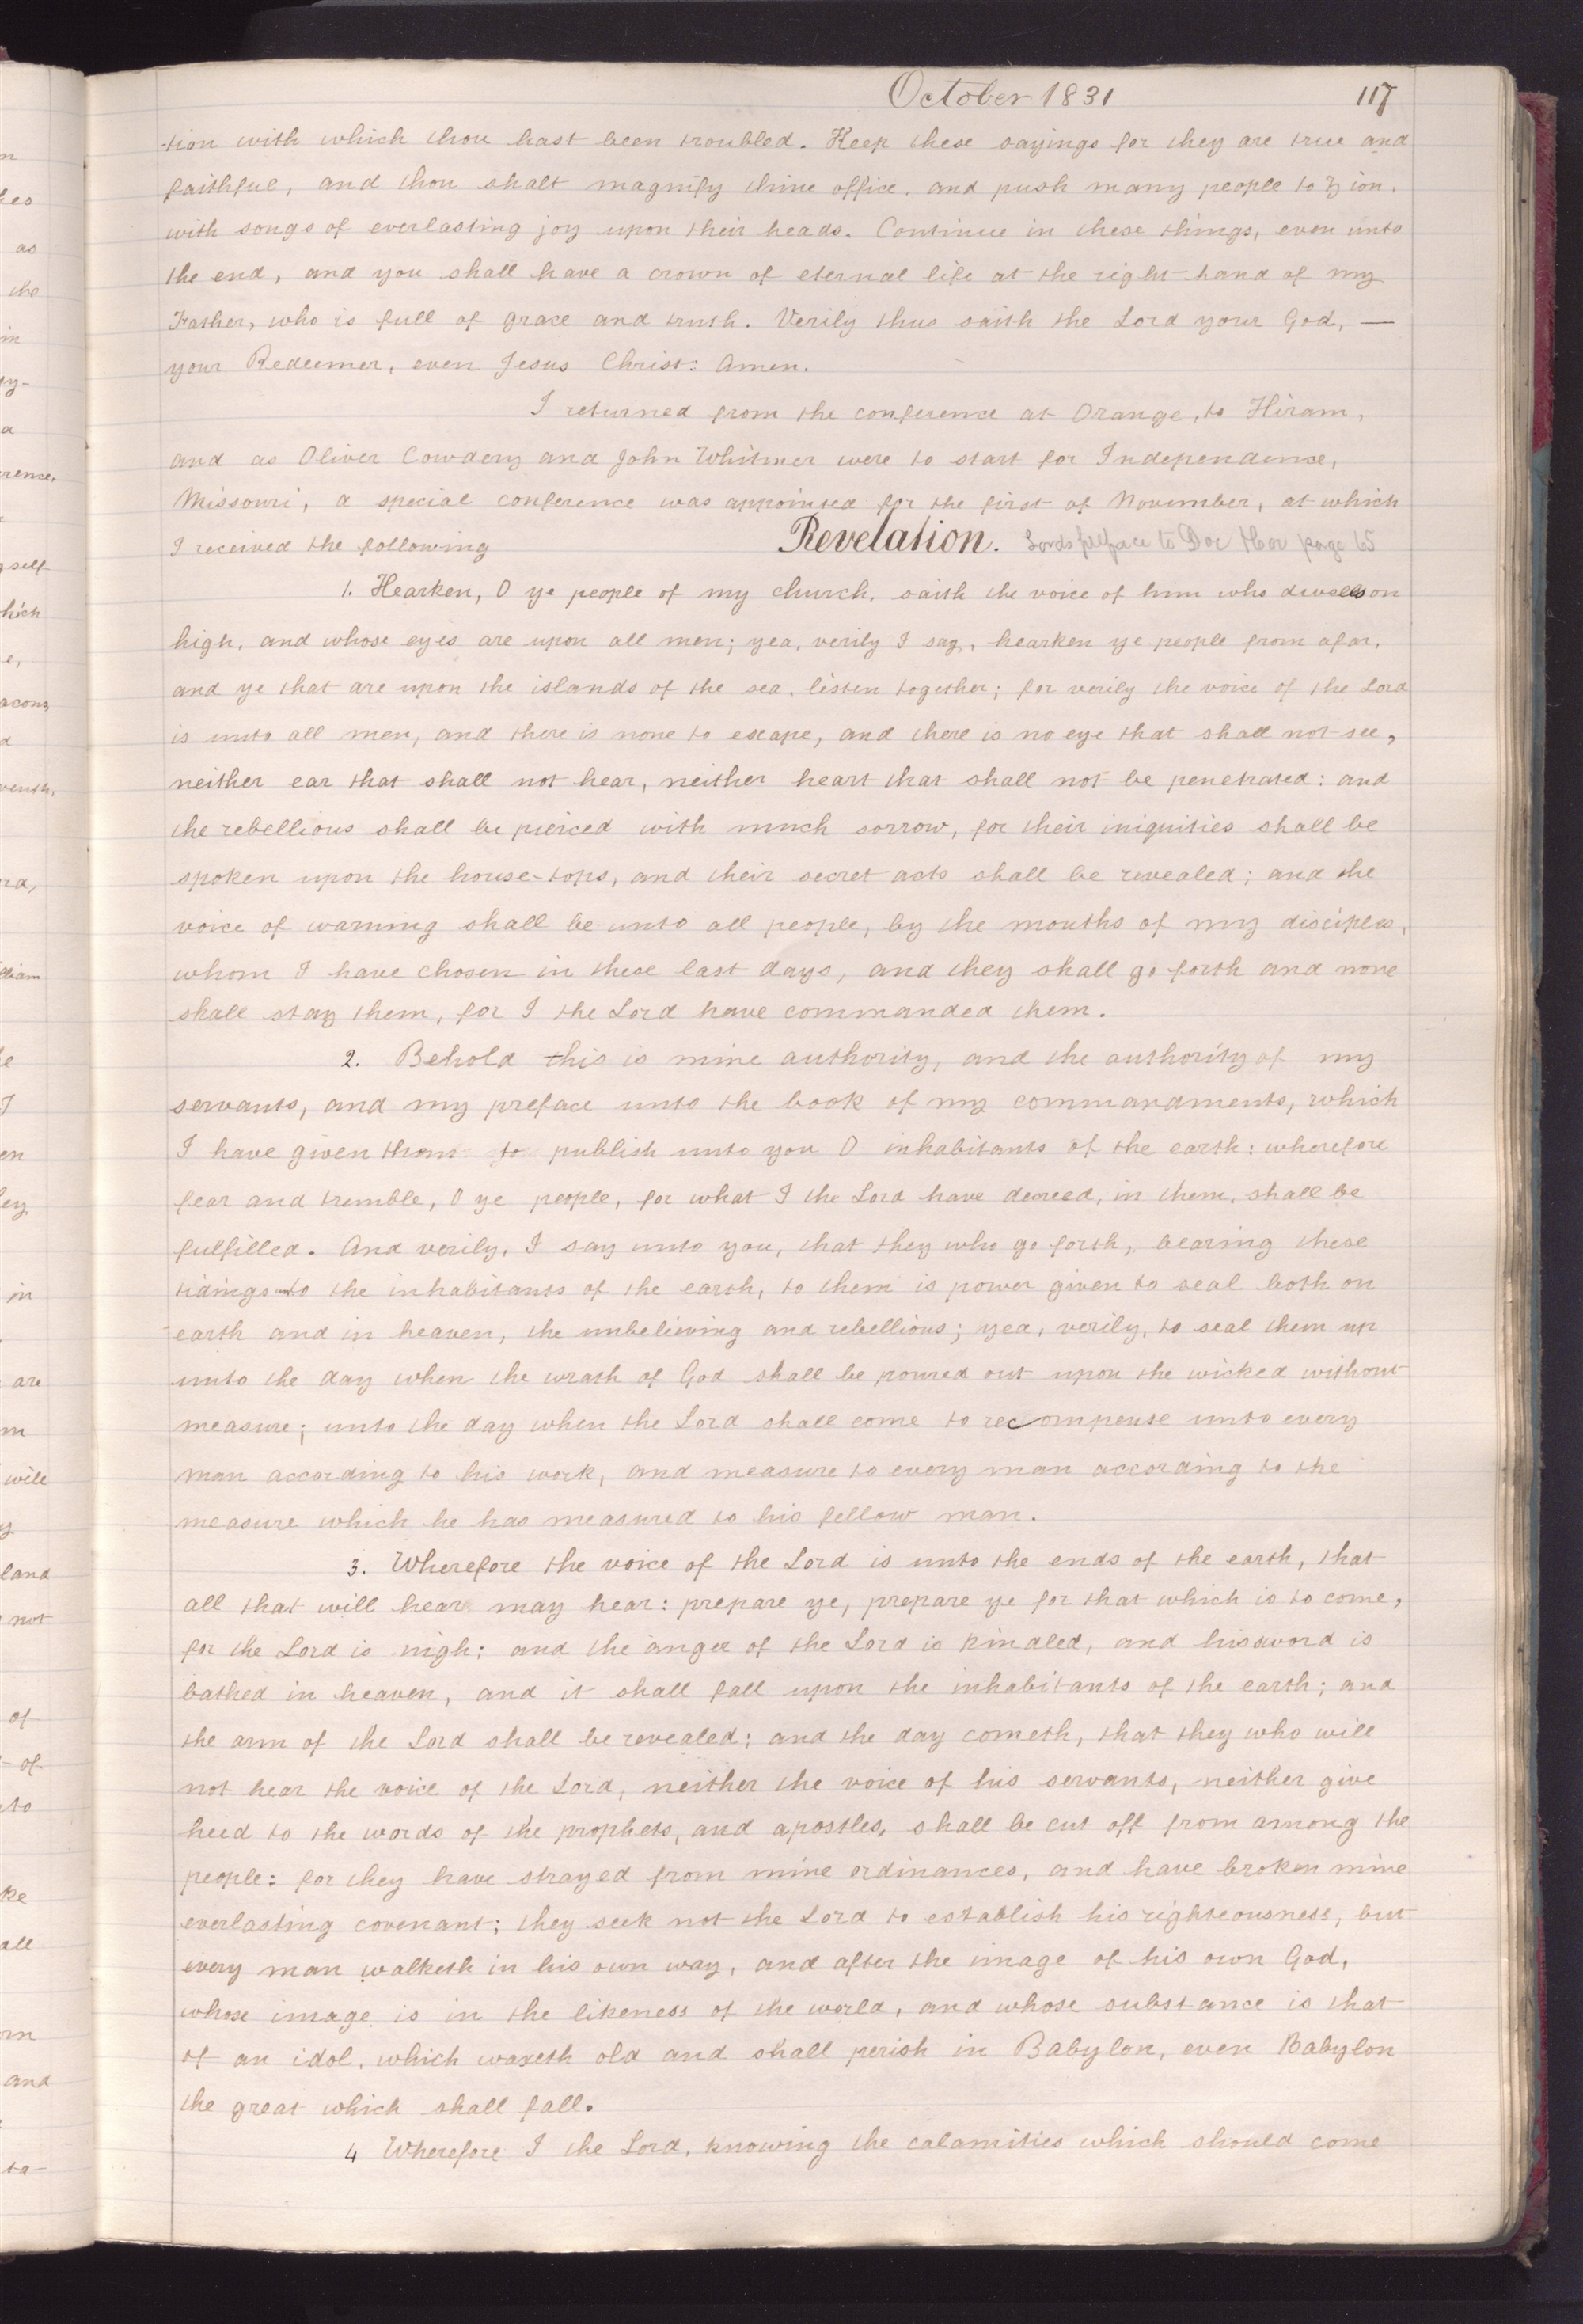 October 1831 117
-tion with which thou hast been troubled. Keep these sayings for they are true and
faithful, and thou shalt magnify thine office, and push many people to Zion,
with songs of everlasting joy upon their heads. Continue in these things, even unto
the end, and you shall have a crown of eternal life at the right hand of my
Father, who is full of grace and truth. Verily thus saith the Lord your God, —
your Redeemer, even Jesus Christ: Amen.
I returned from the conference at Orange, to Hiram,
and as Oliver Cowdery and John Whitmer were to start for Independence,
Missouri, a special conference was appointed for the first of November, at which
I received the following Revelation. Lords preface to Doc & Cov page 65
1. Hearken, O ye people of my church, saith the voice of him who dwells on
high, and whose eyes are upon all men; yea, verily I say, hearken ye people from afar,
and ye that are upon the islands of the sea, listen together; for verily the voice of the Lord
is unto all men, and there is none to escape, and there is no eye that shall not see,
neither ear that shall not hear, neither heart that shall not be penetrated: and
the rebellious shall be pierced with much sorrow, for their iniquities shall be
spoken upon the house-tops, and their secret acts shall be revealed; and the
voice of warning shall be unto all people, by the mouths of my disciples,
whom I have chosen in these last days, and they shall go forth and none
shall stay them, for I the Lord have commanded them.
2. Behold this is mine authority, and the authority of my
servants, and my preface unto the book of my commandments, which
I have given them to publish unto you O inhabitants of the earth: wherefore
fear and tremble, O ye people, for what I the Lord have decreed, in them, shall be
fulfilled. And verily, I say unto you, that they who go forth, bearing these
tidings unto the inhabitants of the earth, to them is power given to seal both on
earth and in heaven, the unbelieving and rebellious; yea, verily, to seal them up
unto the day when the wrath of God shall be poured out upon the wicked without
measure; unto the day when the Lord shall come to recompense unto every
man according to his work, and measure to every man according to the
measure which he has measured to his fellow man.
3. Wherefore the voice of the Lord is unto the ends of the earth, that
all that will hear may hear: prepare ye, prepare ye for that which is to come,
for the Lord is nigh; and the anger of the Lord is kindled, and his sword is
bathed in heaven, and it shall fall upon the inhabitants of the earth; and
the arm of the Lord shall be revealed; and the day cometh, that they who will
not hear the voice of the Lord, neither the voice of his servants, neither give
heed to the words of the prophets, and apostles, shall be cut off from among the
people: for they have strayed from mine ordinances, and have broken mine
everlasting covenant; they seek not the Lord to establish his righteousness, but
every man walketh in his own way, and after the image of his own God,
whose image is in the likeness of the world, and whose substance is that
of an idol, which waxeth old and shall perish in Babylon, even Babylon
the great which shall fall.
4 Wherefore I the Lord, knowing the calamities which should come